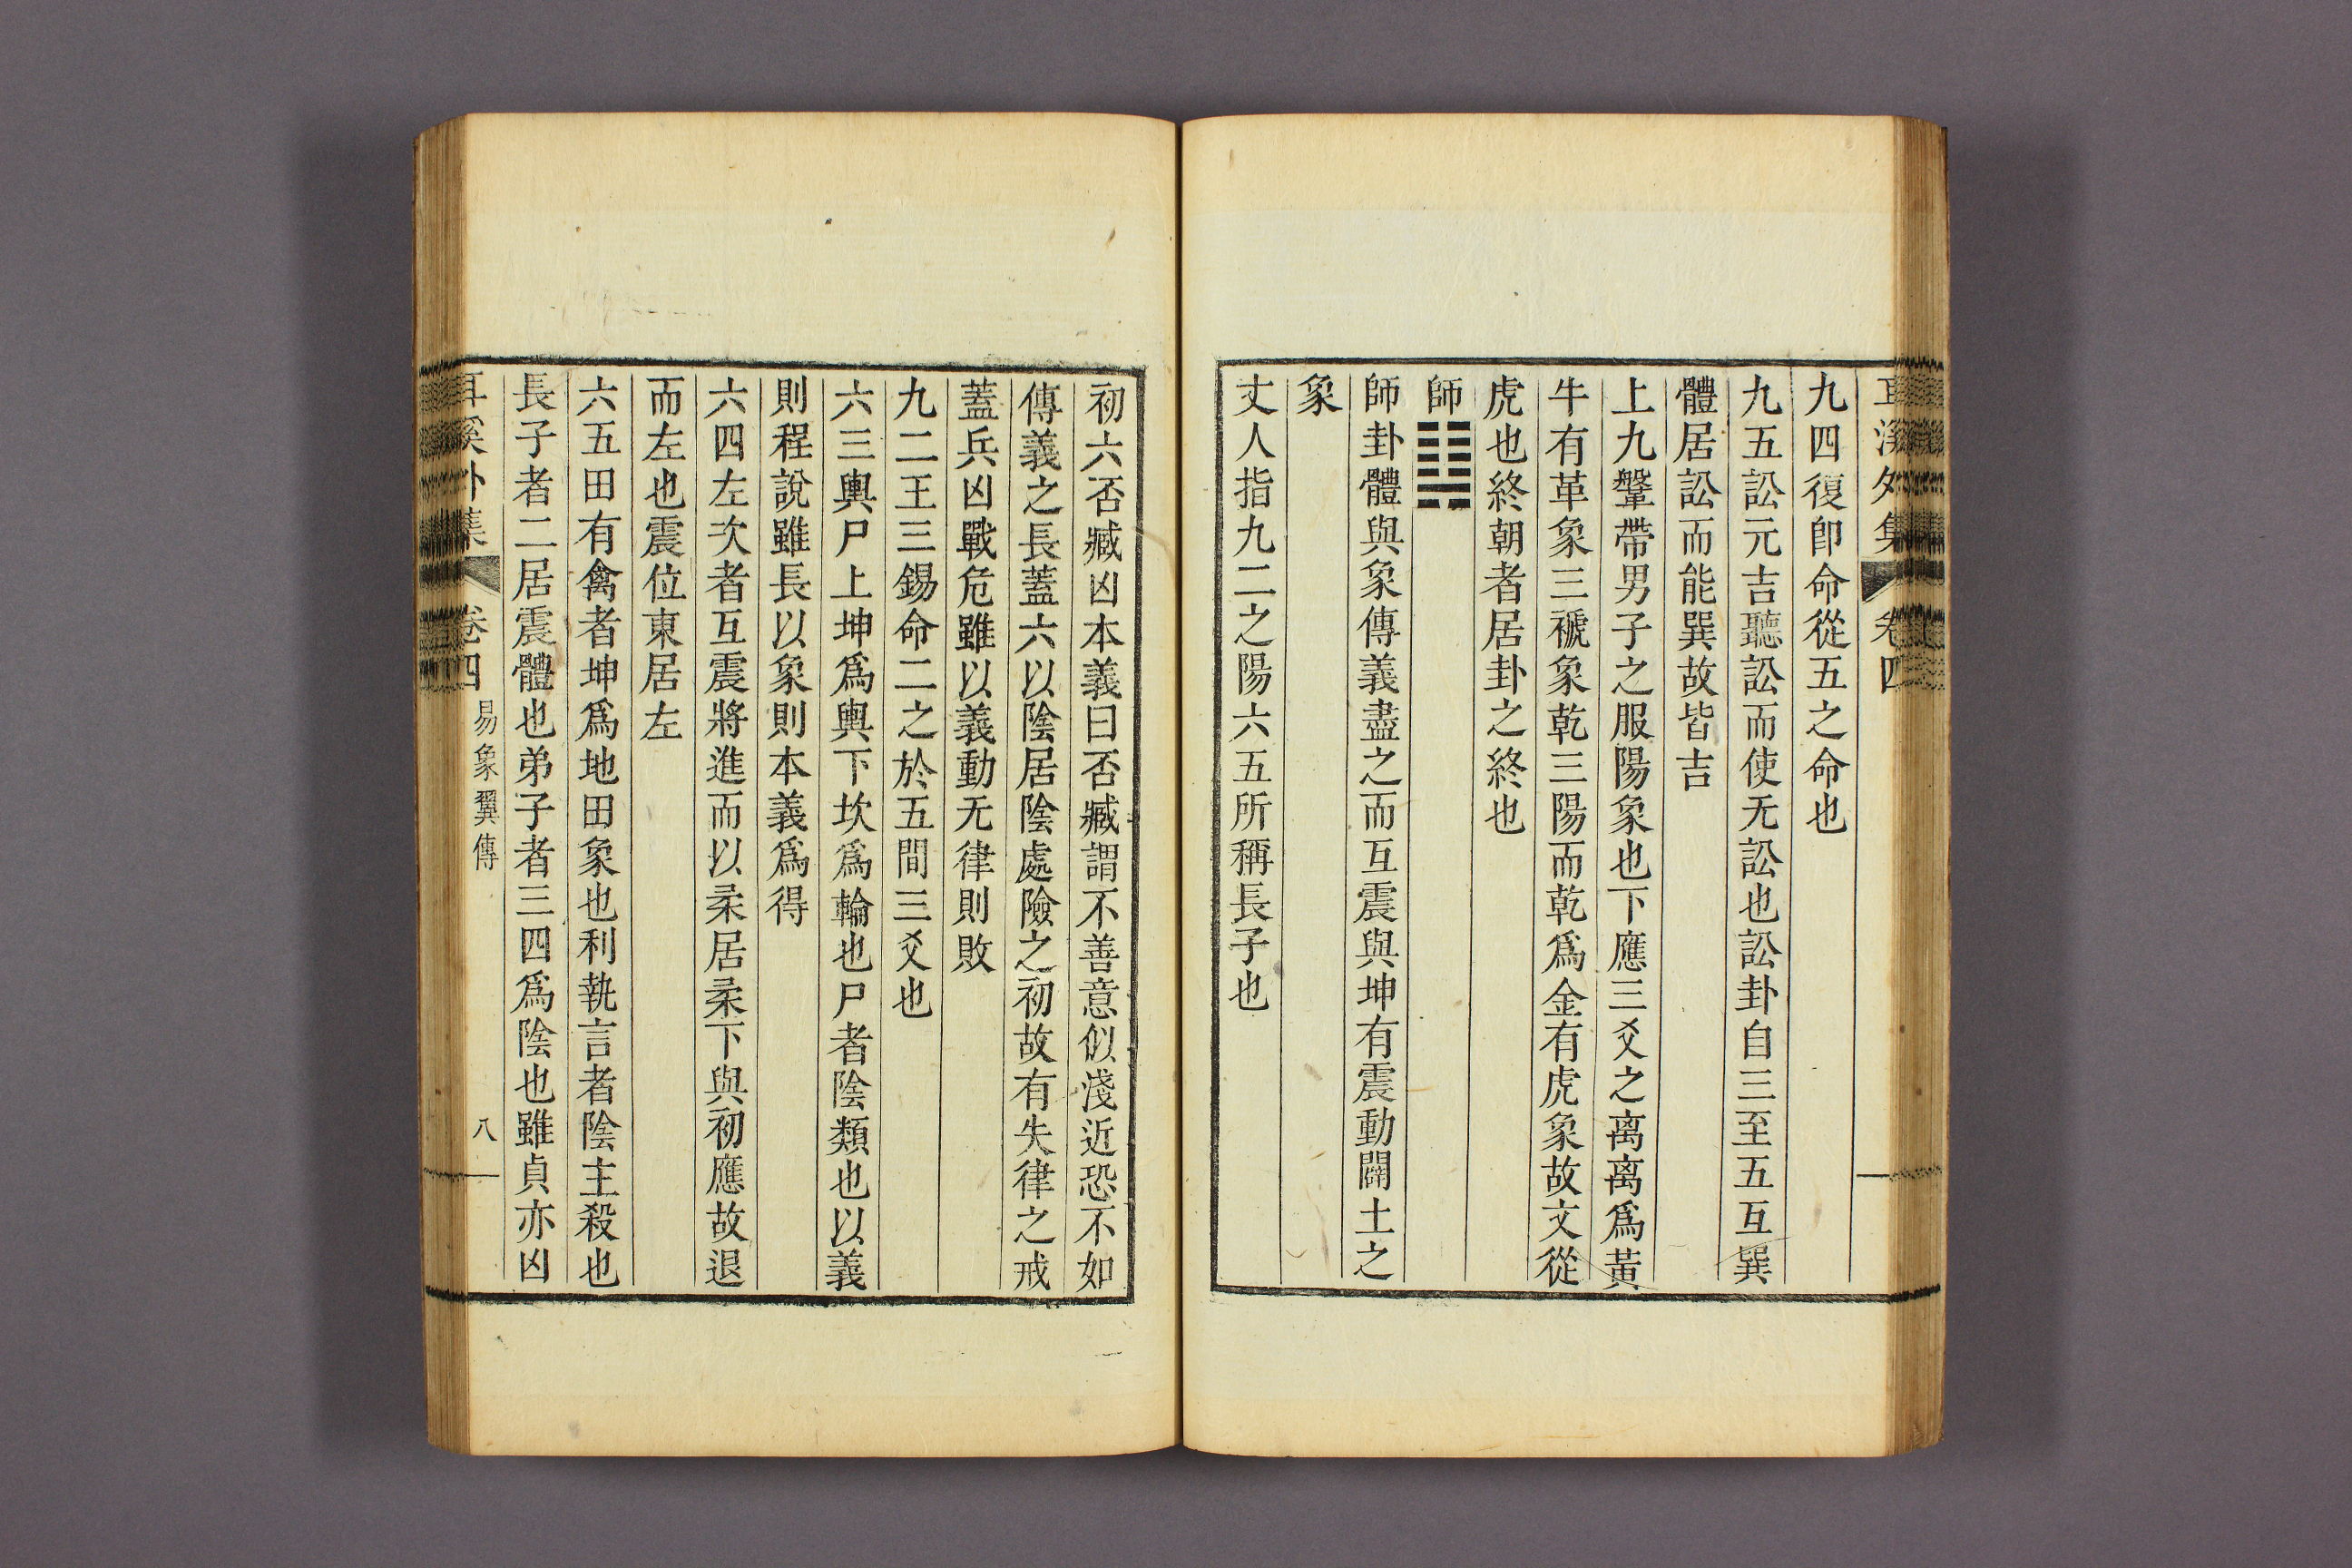 耳溪外集 卷四
九四復卽命從五之命也
九五訟元吉聽訟而使无訟也訟卦自三至五互巽
體居訟而能巽故皆吉
上九鞶帶男子之服陽象也下應三爻之离离爲黃
牛有革象三褫象乾三陽而乾爲金有虎象故文從
虎也終朝者居卦之終也
師䷆
師卦體與象傳義盡之而互震與坤有震動闢土之
象
丈人指九二之陽六五所稱長子也
初六否臧凶本義曰否臧謂不善意似淺近恐不如
傳義之長蓋六以陰居陰處險之初故有失律之戒
蓋兵凶戰危雖以義動无律則敗
九二王三錫命二之於五間三爻也
六三輿尸上坤爲輿下坎爲輪也尸者陰類也以義
則程說雖長以象則本義爲得
六四左次者互震將進而以柔居柔下與初應故退
而左也震位東居左
六五田有禽者坤爲地田象也利執言者陰主殺也
長子者二居震體也弟子者三四爲陰也雖貞亦凶
耳溪外集 卷四 易象翼傳 八